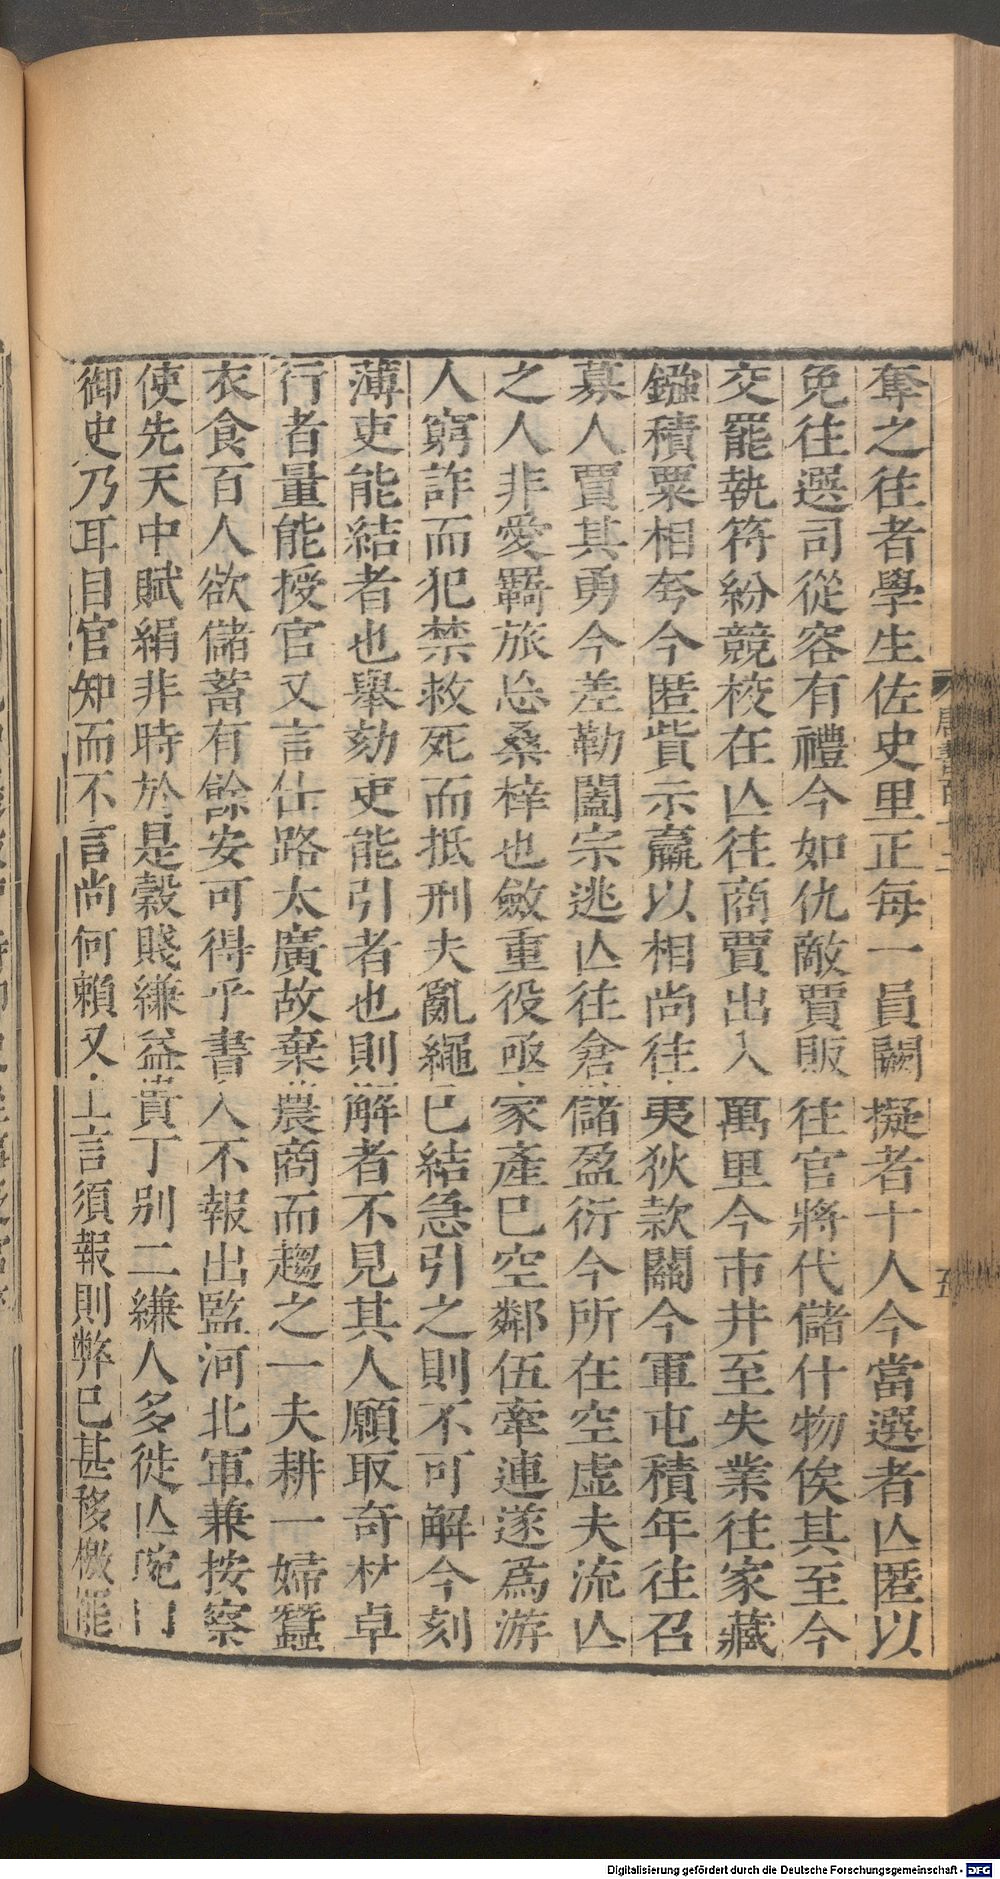 奪之往者學生佐史里正每一員闕擬者十人今當選者亾匿以
免往選司從容有禮今如仇敵賈販往官將代儲什物俟其至今
交罷執符紛競校在亾往商賈出入萬里今市井至失業往家藏
鏹積粟相夸今匿貲示羸以相尚往夷狄款關今軍屯積年往召
募人賈其勇今差勒闔宗逃亾往倉儲盈衍今所在空虛夫流亾
之人非愛羇旅忩桑梓也斂重役亟家產已空鄰伍牽連遂爲游
人窮詐而犯禁救死而抵刑夫亂繩已結急引之則不可解今刻
薄吏能結者也舉劾吏能引者也則解者不見其人願取奇材卓
行者量能授官又言仕路太廣故棄農商而趨之一夫耕一婦蠶
衣食百人欲儲蓄有餘安可得乎書入不報出監河北軍兼按察
使先天中賦絹非時於是穀賤縑益貴丁別二縑人多徙亾陀門
御史乃耳目官知而不言尚何賴又上言須報則弊已甚移檄罷
唐書
五
Digitalisierung gefördert durch die Deutsche Forschungsgemeinschaft - DFG